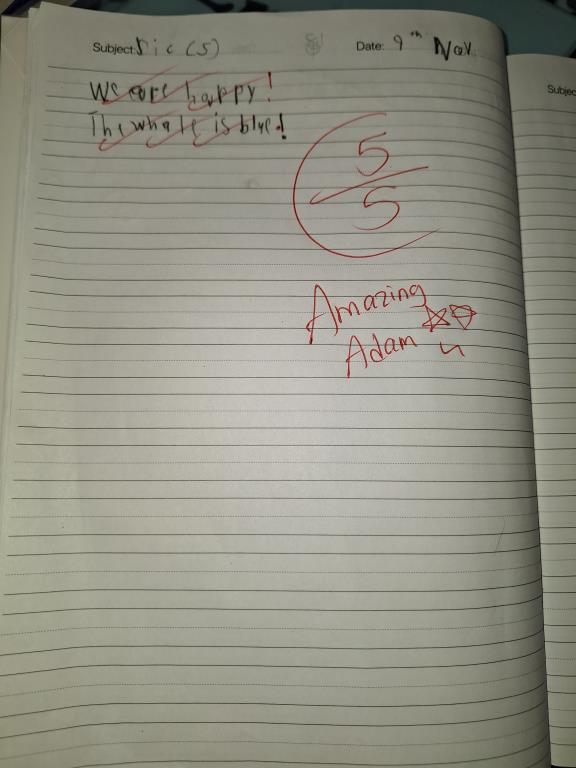 Subject: Dic (5)
Date: 9th Nov.
Subjec
We are happy!
The whale is blue!
5
5
Amazing
Adam